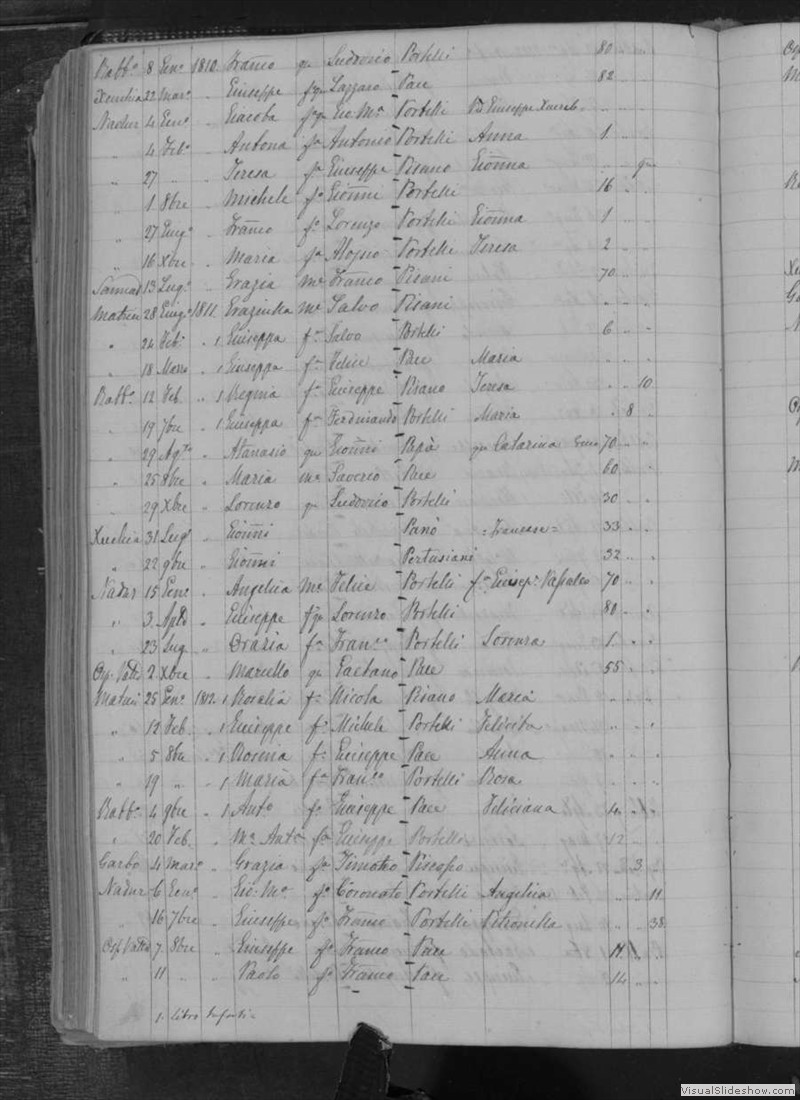 Rabb.o 8 Gen.o 1810. Franco qu Ludovico Portelli 80
Xeuchia 22 Mar.o " Giuseppe f qu Lazzaro Pace 82
Nadur 4 Gen.o " Giacoba f qu Gio M.a Portelli Giuseppe Xuereb
" 4 Feb.o " Antona fa Antonio Portelli Anna 1
" 27 " " Teresa fa Giuseppe Pisano Gionna
" 1 8bre " Michele fo Gionni Portelli 16
" 27 Giug.o " Franco fo Lorenzo Portelli Gionna 1
" 16 Xbre " Maria fa Aloisio Portelli Teresa 2
Sannat 13 Lug.o " Grazia me Franco Pisani 70
Matrice 28 Giug.o 1811. Graziulla me Salvo Pisani
" 24 Feb.o " 1 Giuseppa fa Salvo Portelli 6
" 18 Marzo " 1 Giuseppa fa Felice Pace Maria
Rabb.o 12 Feb. " 1 Regina fa Giuseppe Pisano Teresa 10
" 19 7bre " 1 Giuseppa fa Ferdinando Portelli Maria 8
" 29 Ag.to " Atanasio qu Gionni Papà qu Catarina 70
" 25 8bre " Maria me Saverio Pace 60
" 29 Xbre " Lorenzo qu Ludovico Portelli 30
Xeuchia 31 Lug.o " Gionni Panò = Francese = 33
" 22 9bre " Gionni Pertusiani 32
Nadur 15 Gen.o " Angelica me Felice Portelli fa Giusep.e 70
" 3. " Giuseppe f qu Lorenzo Portelli 80
" 23 Lug " Orazia fa Fran.co Portelli Lorenza 1
Osp. Vatt. 2 Xbre " Marcello qu Gaetano Pace 55
Matrice 25 Gen.o 1812. 1 Rosalia fa Nicola Pisano Maria
" 12 Feb. " 1 Giuseppe fo Michele Portelli Felicita
" 5 8bre " 1 Rosina fa Giuseppe Pace Anna
" 19 " " 1 Maria fa Fran.co Portelli Rosa
Rabb.o 4 9bre " 1 Ant.o fo Giuseppe Pace Feliciana 4
" 20 Feb. " M.a Ant.a fa Giuseppe Portelli 12
Garbo 4 Mar.o " Grazia fa Timoteo Piscopo 3
Nadur 6 Gen.o " Gio. M.a fo Coronato Portelli Angelica 11
" 16 7bre " Giuseppe fo Franco Portelli Petronilla 38
Osp. Vatta 7 8bre " Giuseppe fo Franco Pace 11
" 11 " " Paolo fo Franco Pace 14
1. libro Infanti =
VisualSlideshow.com